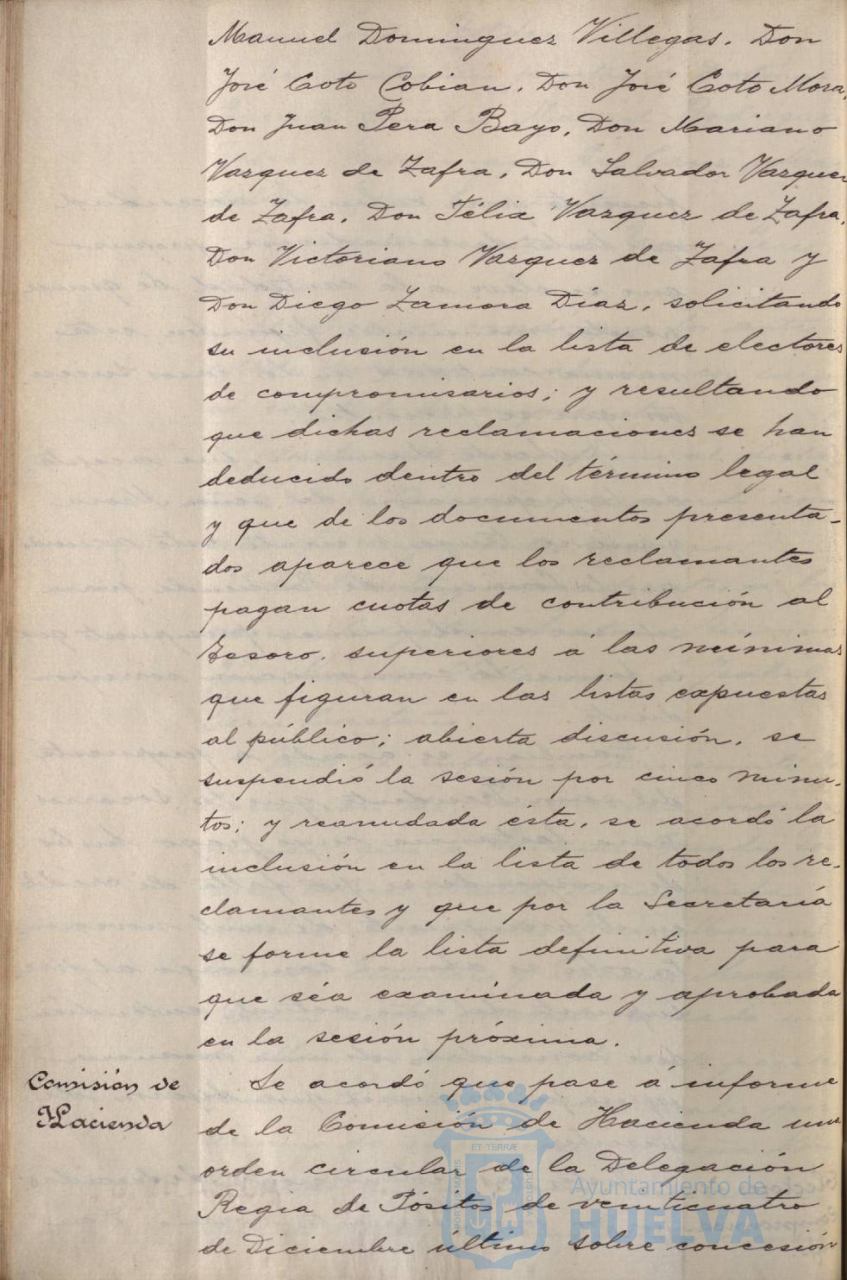 Manuel Dominguez Villegas. Don
José Coto Cobian. Don José Coto Mora,
Don Juan Pera Bayo, Don Mariano
Vazquez de Zafra, Don Salvador Vazquez
de Zafra. Don Félix Vazquez de Zafra.
Don Victoriano Vazquez de Zafra y
Don Diego Zamora Díaz. solicitando
su inclusión en la lista de electores
de compromisarios; y resultando
que dichas reclamaciones se han
deducido dentro del término legal
y que de los documentos presenta-
dos aparece que los reclamantes
pagan cuotas de contribución al
Tesoro. superiores á las mínimas
que figuran en las listas expuestas
al público; abierta discusión. se
suspendió la sesión por cinco minu-
tos; y reanudada ésta, se acordó la
inclusión en la lista de todos los re-
clamantes y que por la Secretaría
se forme la lista definitiva para
que séa examinada y aprobada
en la sesión próxima.
Comisión de
Hacienda
Se acordó que pase á informe
de la Comisión de Hacienda una
orden circular de la Delegación
Regia de Pósitos de veinticuatro
de Diciembre último sobre concesión
Ayuntamiento de
HUELVA